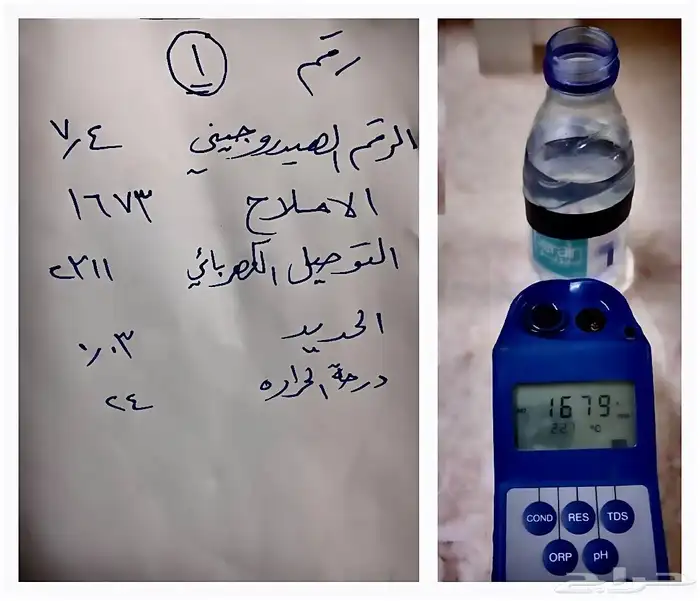 رقم ١
الرقم الهيدروجيني ٧٫٤
الاملاح ١٦٧٣
التوصيل الكهربائي ٢٣١١
الحديد ٠٫٠٣
درجة الحراره ٢٤
1
1679
22
°C
COND RES TDS
ORP pH
حراج